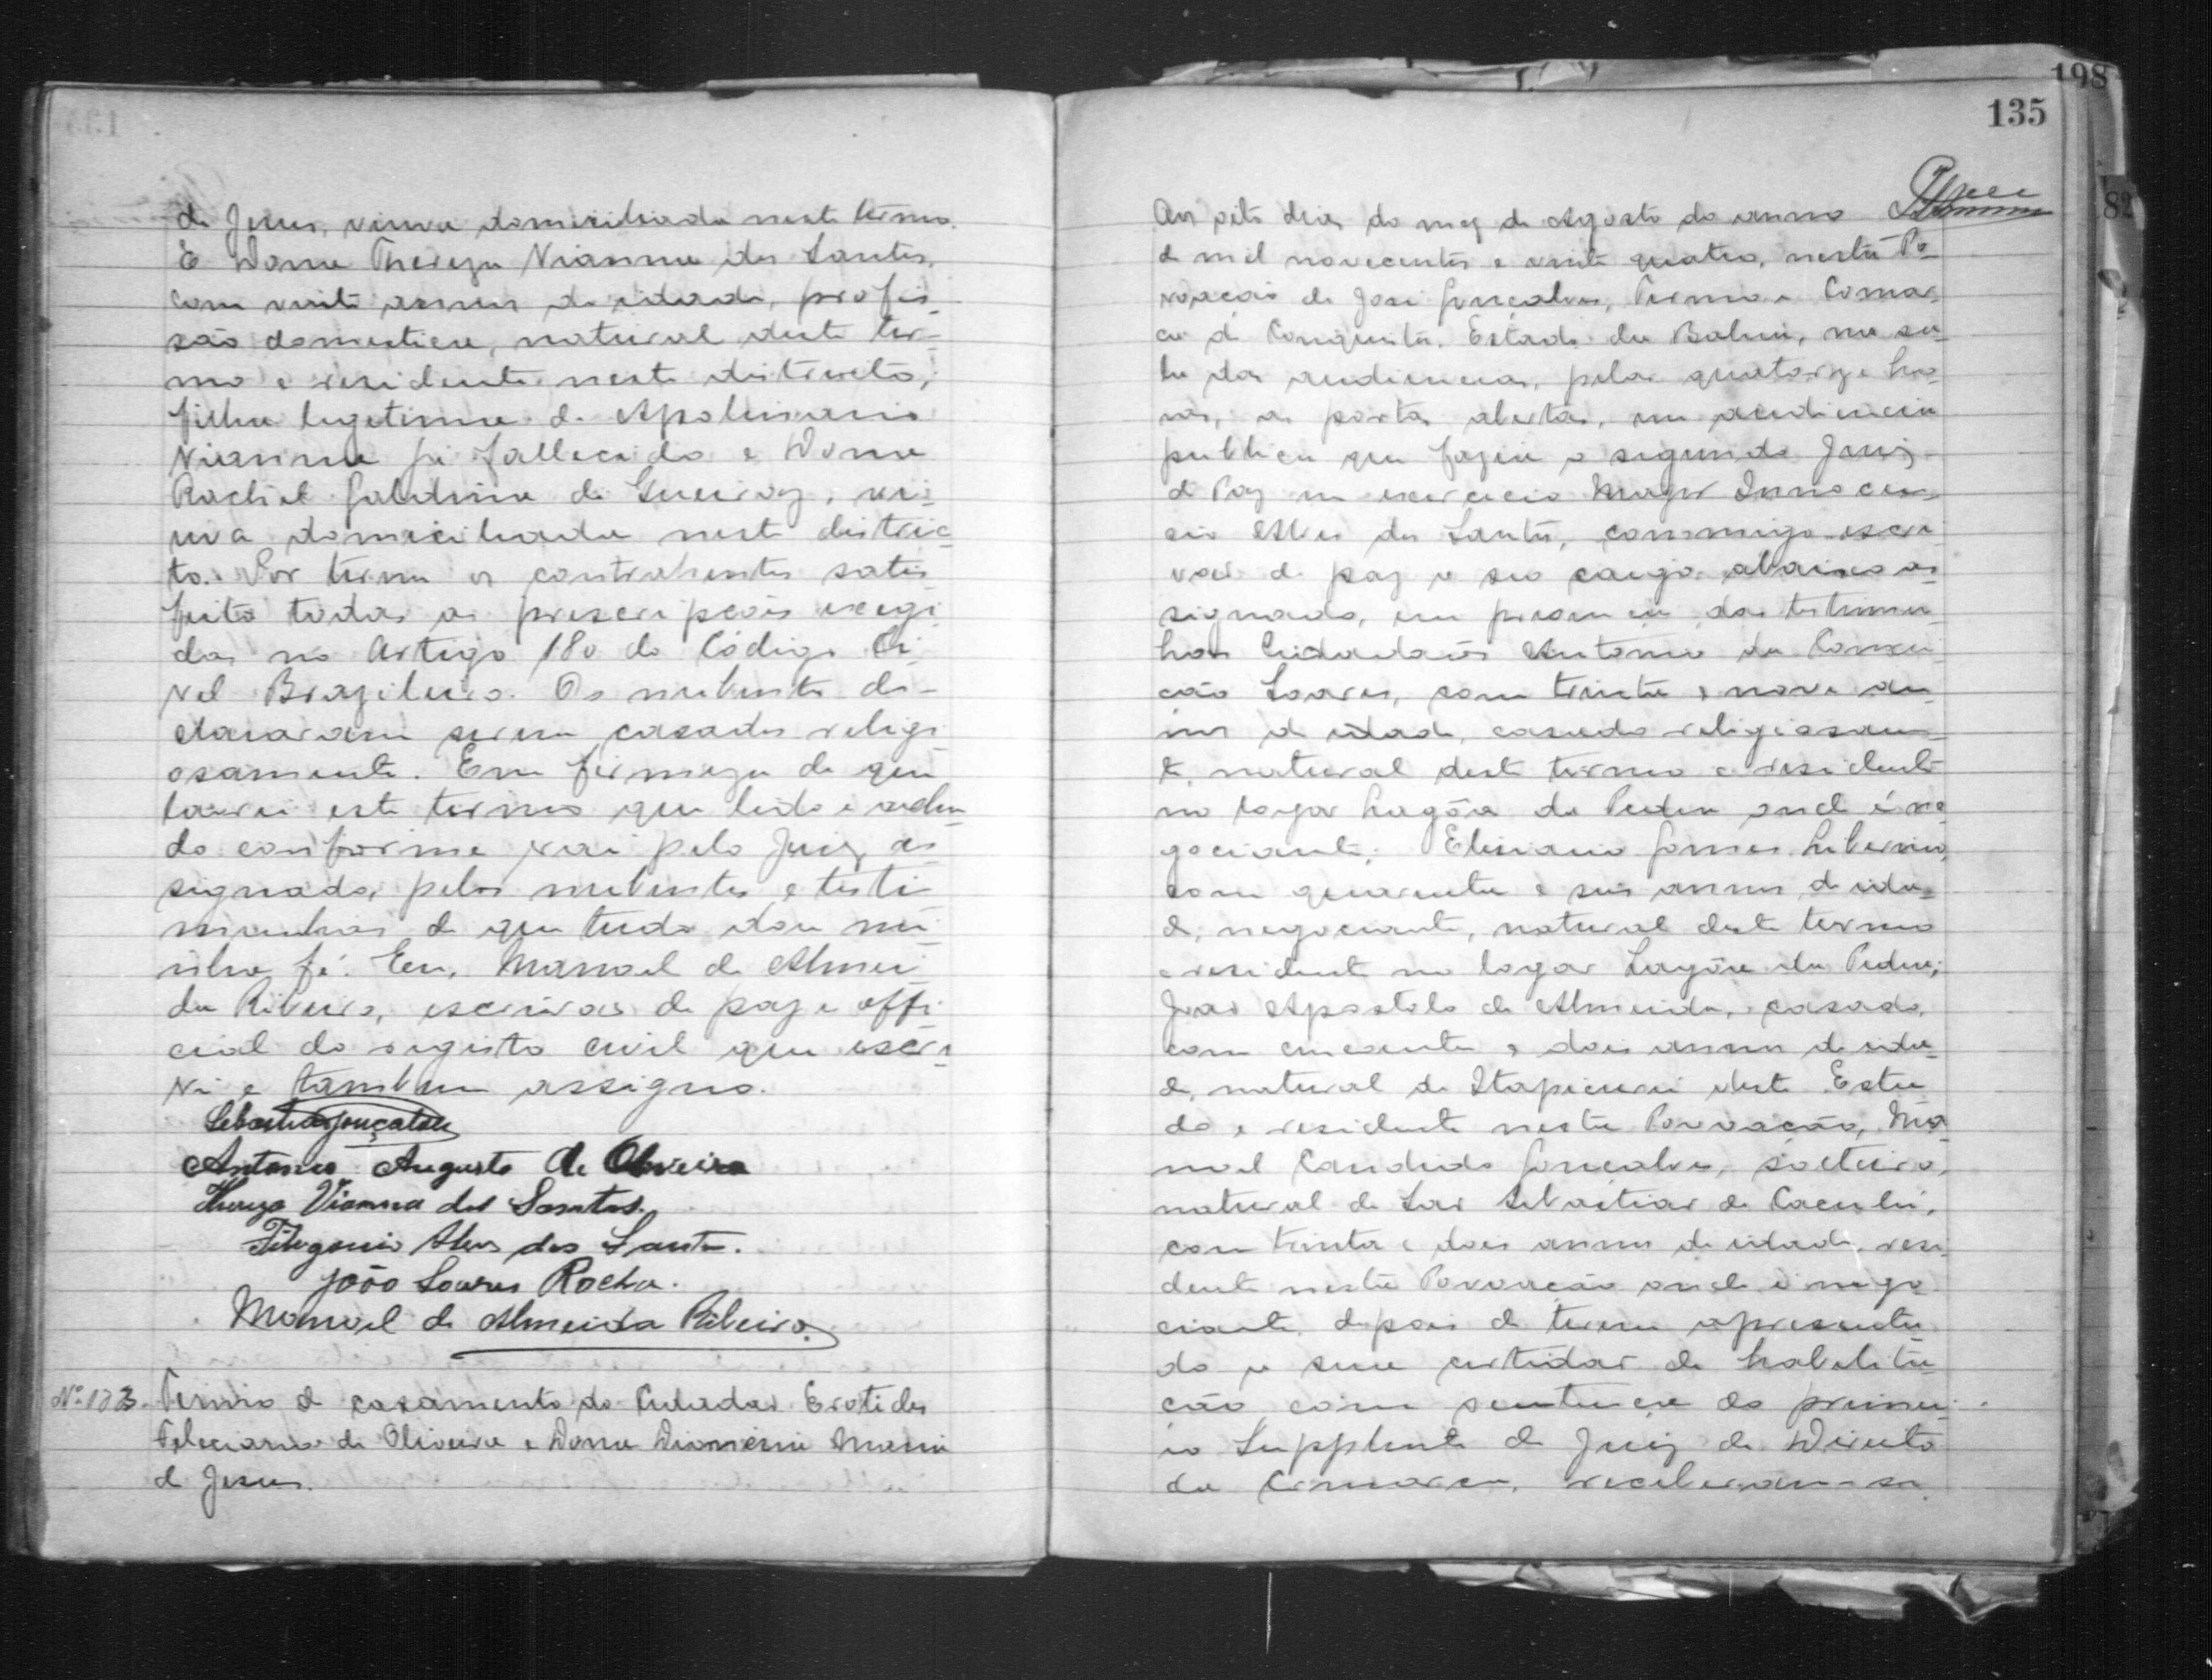 de Jesus, viuva domiciliada neste termo.
E Dona Thereza Vianna dos Santos,
com vinte annos de idade, profis-
são domestica, natural deste ter-
mo e residente neste districto,
filha legitima de Apolinario
Vianna já fallecido e Dona
Rachel Galdina de Queiroz, viu-
uva domiciliada neste distric-
to. Por terem os contrahentes satis-
feito todas as prescripçoes exegi-
das no Artigo 180 do Código Ci-
vel Brazileiro. Os nubentes de-
claararam serem casados religi-
osamente. Em firmeza de que
lavrei este termo que lido e acha-
do conforme vai pelo Juiz as-
signado, pelos nubentes e testi-
munhas de que tudo dou mi-
nha fé. Eu, Manoel de Almei-
da Ribeiro, escrivão de paz e offi-
cial do registo civil que escre-
vi e tambem assigno.
Sebastião Gonçalves
Antonio Augusto de Oliveira
Thereza Vianna dos Santos.
Filogonio Alves dos Santos.
João Soares Rocha.
Manoel de Almeida Ribeiro.
Nº 133. Termo de casamento do Cidadão Erotides
Feleciano de Oliveira e Dona Maria
de Jesus.
198
135
82
Aos oito dias do mez de Agosto do anno
de mil novecentos e vinte quatro, nesta Po-
voação de José Gonçalves, Termo e Comar-
ca de Conquista, Estado da Bahia, na sa-
la das audiencias, pelas quatorze ho-
ras, as portas abertas, em audiencia
publica que fazia o segundo Juiz
de Paz em exercicio Major Innocen-
cio Alves dos Santos, commigo escri-
vão de paz a seo cargo abaixo as-
signado, em presença das testimu-
has Cidadaõs Antonio da Concei-
ção Soares, com trinta e nove an-
nos de idade, casado religiosamen-
te, natural deste termo e residente
no logar Lagôa da Pedra onde é ne-
gociante; Elisiario Gomes Liberino,
com quarenta e seis annos de ida-
de, negociante, natural deste termo
e residente no logar Lagôa da Pedra;
João Apostolo de Almeida, casado,
com cincoenta e dois annos de ida-
de, natural de Itapicurú deste Esta-
do e residente nesta Povoação, Ma-
noel Candido Gonçalves, solteiro,
natural de São Sebastião de Caculé,
com trinta e dois annos de idade, resi-
dente nesta Povoação onde é nego-
ciante, depois de terem apresenta-
do a sua certidão de habilita-
ção com sentença do primei-
ro Supplente de Juiz de Direito
da Comarca, receberam-se